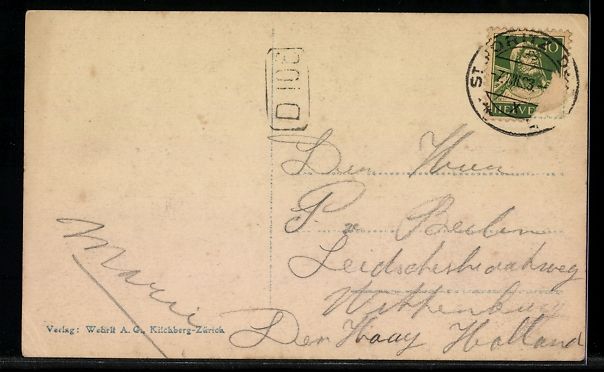 D 103
ST. MORITZ
10
HELVE
Den Heer
P. v. Berlin
Leidschestraatweg
Wittenburg
Den Haag Holland
Marie
Verlag: Wehrli A. G., Kilchberg-Zürich